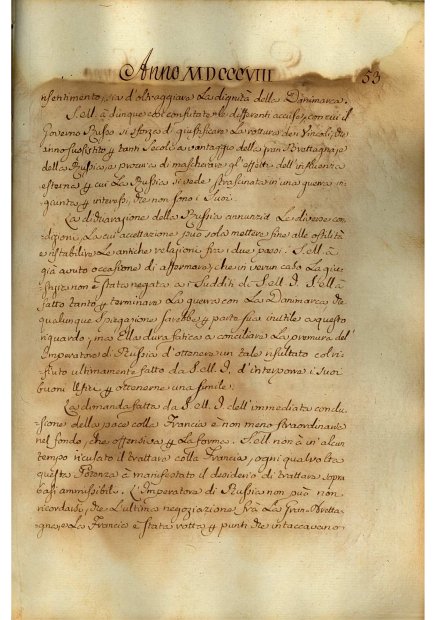 Anno MDCCCVIII 53
risentimento, sia d'oltraggiare la dignità della Danimarca.
S. M. à dunque così confutate le differenti accuse, con cui il
Governo Russo si sforza di giustificare la rottura dei Vincoli, che
anno sussistito p tanti Secoli a vantaggio della gran Brettagna, e
della Russia, e procura di mascherare gl'effetti dell'influenza
esterna p cui la Russia si vede strascinata in una guerra in
giunta p interessi, che non sono i Suoi.
La dichiarazione della Russia annunzia le diverse con
dizioni, la cui accettazione può sola mettere fine alle ostilità
e ristabilire le antiche relazioni fra i due paesi. S. M. à
già avuto occasione di affermare, che in verun caso la giu
stizia non è stata negata a i Sudditi di S. M. I. S. M. à
fatto tanto p terminare la guerra con la Danimarca che
qualunque Spiegazione sarebbe p parte sua inutile a questo
riguardo, ma Ella dura fatica a conciliare la premura dell'
Imperatore di Russia d'ottenere un tale risultato col ri-
fiuto ultimamente fatto da S. M. I. d'interporre i suoi
buoni Ufizi p ottenerne una simile.
La domanda fatta da S. M. I. dell'immediata conclu
sione della pace colla Francia è non meno straordinaria
nel fondo, che offensiva p la forma. S. M. non à in alcun
tempo ricusato il trattare colla Francia, ogni qualvolta
questa Potenza à manifestato il desiderio di trattare sopra
basi ammissibili. L'Imperatore di Russia non può non
ricordarsi, che l'ultima negoziazione frà la Gran Bretta
gna, e la Francia è stata rotta p punti che intaccavano